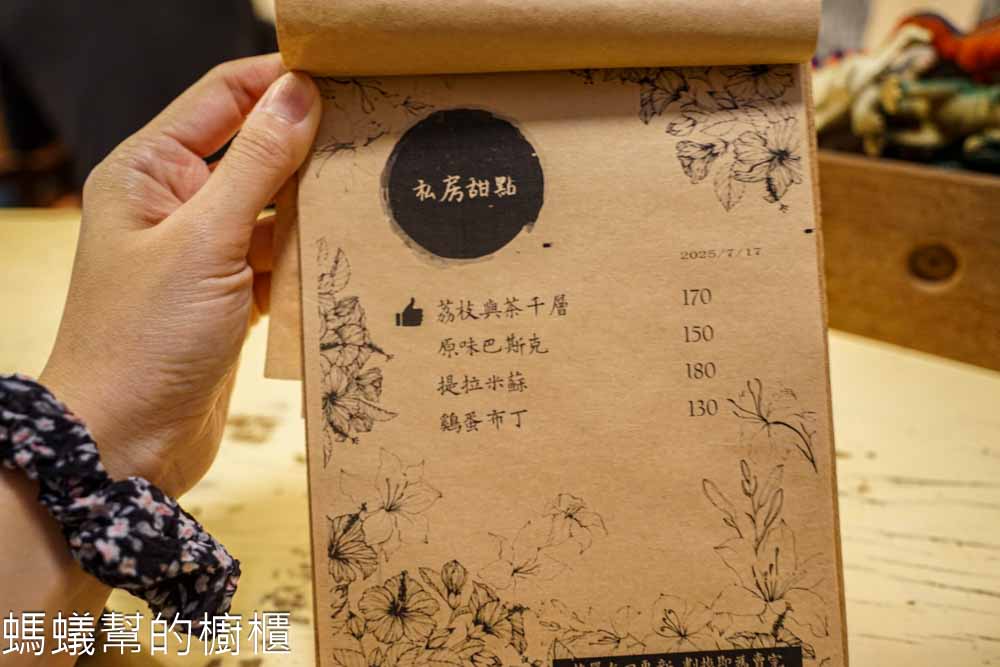 私房甜點
2025/7/17
荔枝與茶千層 170
原味巴斯克 150
提拉米蘇 180
鷄蛋布丁 130
螞蟻幫的櫥櫃